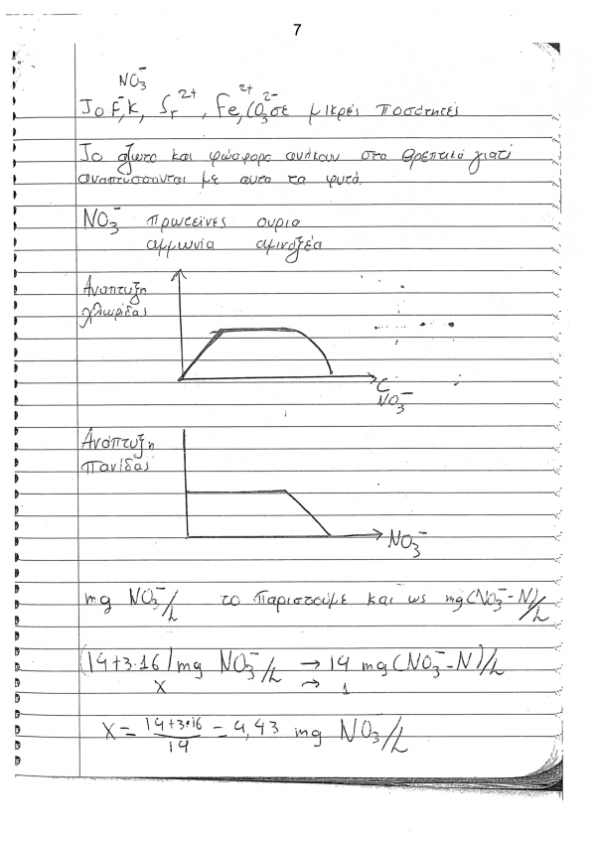 7
NO₃⁻
Το F⁻, K, Sr²⁺, Fe²⁺, CO₃²⁻ σε μικρές ποσότητες
Το άζωτο και φώσφορο ανήκουν στα θρεπτικά γιατί
αναπτύσσονται με αυτα τα φυτά.
NO₃⁻ πρωτεϊνες ουρια
αμμωνία αμινοξέα
Αναπτυξη
χλωρίδας
C
NO₃⁻
Ανάπτυξη
πανίδας
NO₃⁻
mg NO₃⁻/L το παριστούμε και ως mg(NO₃⁻-N)/L
(14+3·16) mg NO₃⁻/L → 14 mg(NO₃⁻-N)/L
x → 1
x = (14+3·16)/14 = 4,43 mg NO₃⁻/L